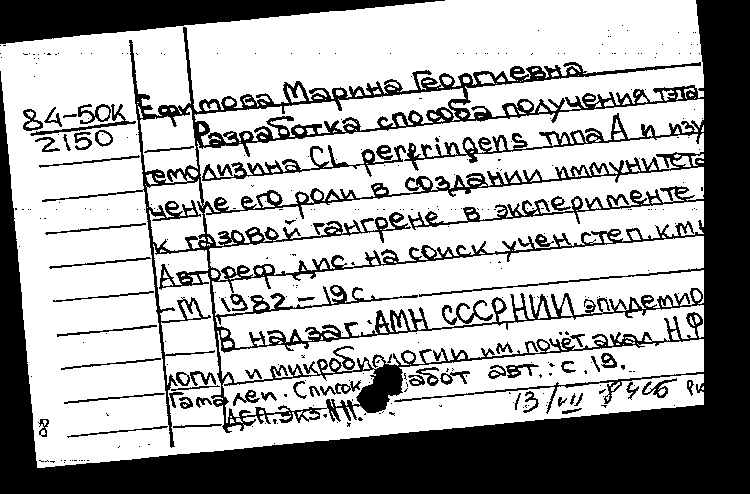 Ефимова, Марина Георгиевна
84-50К
2150
Разработка способа получения тэта-
гемолизина CL perfringens типа А и изу
чение его роли в создании иммунитета
к газовой гангрене в эксперименте:
Автореф. дис. на соиск. учен. степ. к.м.н
-М 1982. - 19 с.
В надзаг: АМН СССР, НИИ эпидемио
логии и микробиологии им. почёт. акад. Н.Ф
Гамалеи. Список работ авт.: с. 19.
ДСП. Экз. №
13/VII 84